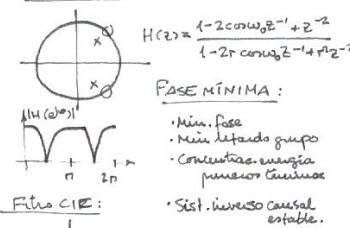 H(z) = (1-2cosω₀z⁻¹+z⁻²) / (1-2r cosω₀z⁻¹+r²z⁻²)
FASE MÍNIMA:
· Min. fase
· Min retardo grupo
· Concentrac. energía
primeros términos
· Sist. inverso causal
estable.
|H(e^jω)|
π 2π ω
Filtro CIR: